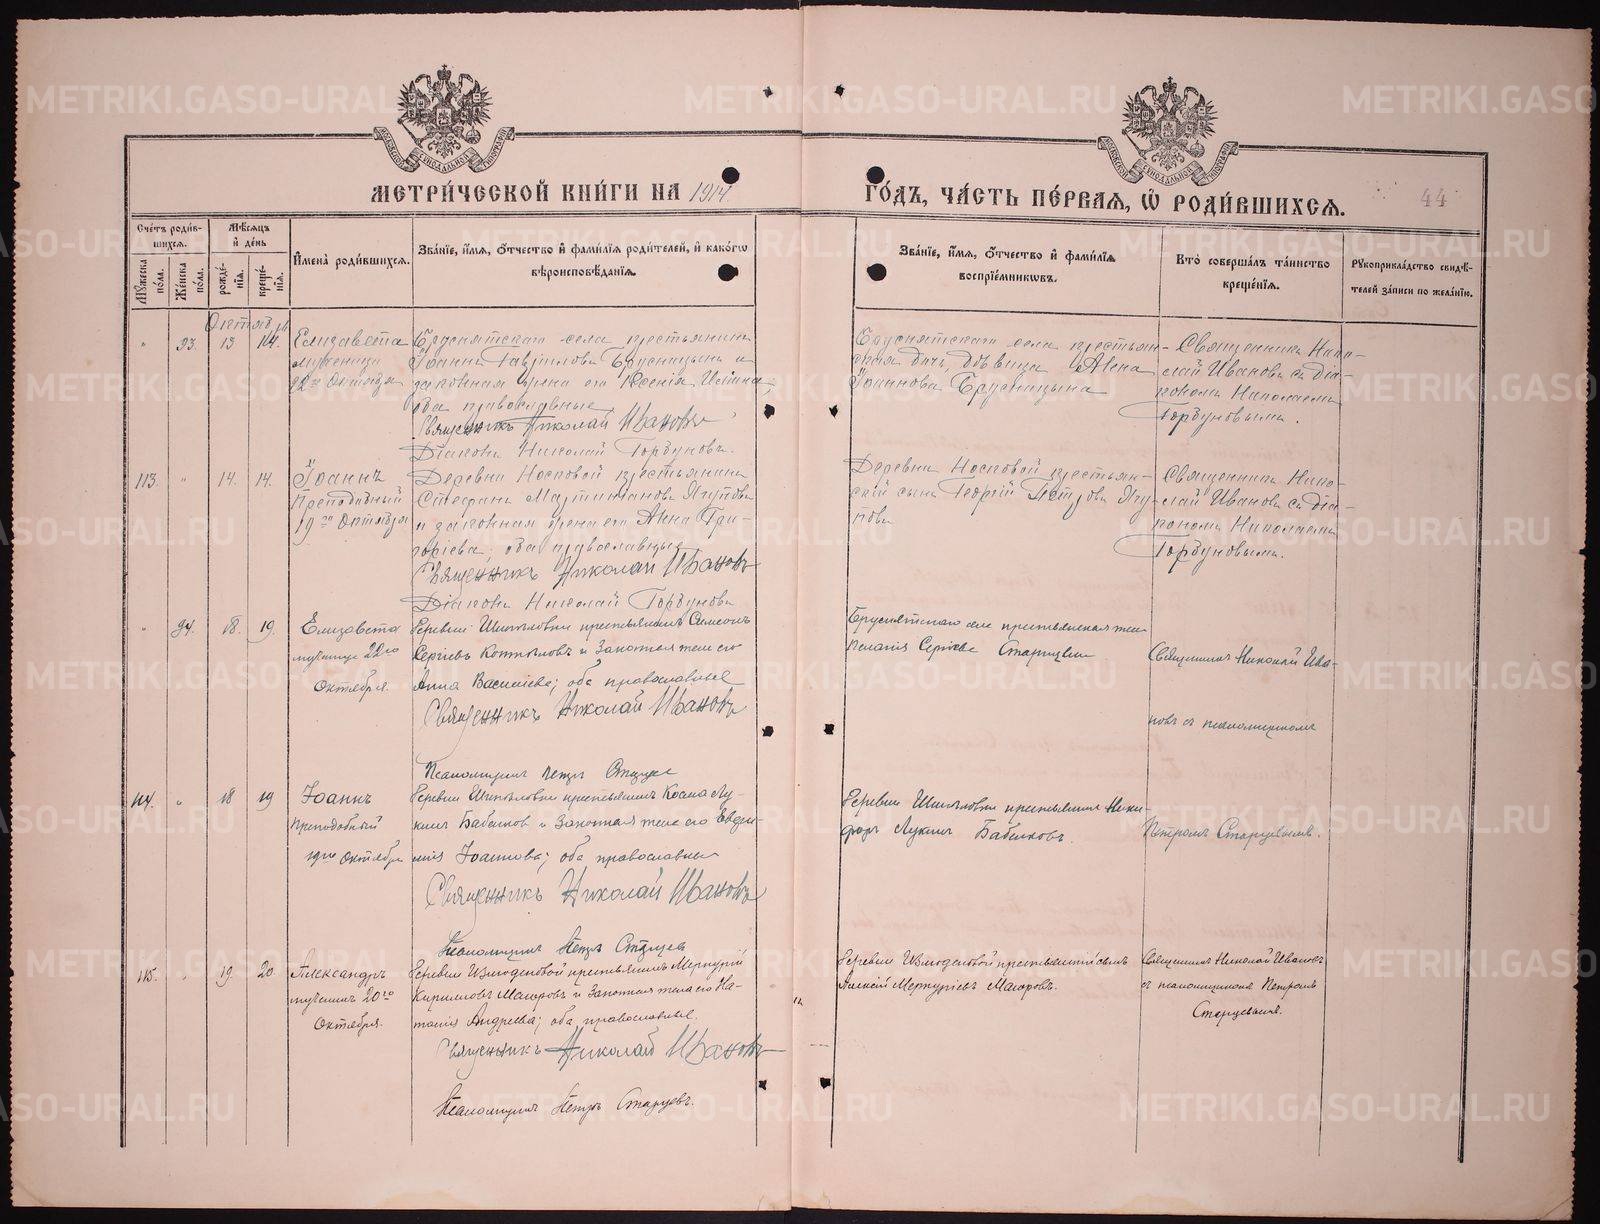 МЕТРИ́ЧЕСКОЙ КНИ́ГИ НА 1914
ГО́ДЪ, ЧА́СТЬ ПЕ́РВАѦ, Ѡ҆ РОДИ́ВШИХСѦ.
44
Сче́тъ роди́в-
шихсѧ.
Мꙋ́жеска по́ла.
Же́нска по́ла.
Мѣ́сѧцъ
и҆ де́нь
рожде́-
нїѧ.
креще́-
нїѧ.
И҆мена̀ роди́вшихсѧ.
Зва́нїе, и҆́мѧ, о҆́тчество и҆ фами́лїѧ роди́телей, и҆ како́гѡ
вѣроисповѣ́данїѧ.
Зва́нїе, и҆́мѧ, о҆́тчество и҆ фами́лїѧ
воспрїе́мникѡвъ.
Кто̀ соверша́лъ та́инство
креще́нїѧ.
Рꙋкоприкла́дство свидѣ́-
телей за́писи по жела́нїю.
Октябрь
" 93. 13 14.
Елизавета
мученицы
22го Октября
Бруснятскаго села крестьянинъ
Іоаннъ Гавріиловъ Брусницынъ и
законная жена его Ксенія Ильина,
оба православные
Священникъ Николай Ивановъ
Діаконъ Николай Горбуновъ.
Бруснятскаго села крестьян-
ская дочь, дѣвица Анна
Іоаннова Брусницына
Священникъ Нико-
лай Ивановъ съ діа-
кономъ Николаемъ
Горбуновымъ.
113. " 14. 14.
Іоаннъ
Преподобный
19го Октября
Деревни Носковой крестьянинъ
Стефанъ Мартиніановъ Ягуповъ
и законная жена его Анна Гри-
горіева, оба православные
Священникъ Николай Ивановъ
Діаконъ Николай Горбуновъ
Деревни Носковой крестьян-
скій сынъ Георгій Петровъ Ягу-
повъ
Священникъ Нико-
лай Ивановъ съ діа-
кономъ Николаемъ
Горбуновымъ.
" 94. 18. 19.
Елизавета
мученицы 22го
Октября.
Деревни Шипѣловки крестьянинъ Симеонъ
Сергіевъ и Законная жена его
Анна Васильева; оба православные
Священникъ Николай Ивановъ
Псаломщикъ Петръ Старцевъ
Бруснятскаго села крестьянская жена
Пелагія Сергіева Старцева
Священникъ Николай Ива-
новъ съ псаломщикомъ
114. " 18 19
Іоаннъ
Преподобный
19го Октября
Деревни Шипѣловки крестьянинъ Косма Лу-
кинъ Бабенковъ и Законная жена его Евдо-
кія Іоаннова; оба православные
Священникъ Николай Ивановъ
Псаломщикъ Петръ Старцевъ
Деревни Шипѣловки крестьянинъ Ники-
форъ Лукинъ Бабенковъ.
Петромъ Старцевымъ.
115. " 19. 20
Александръ
мученикъ 20го
Октября.
Деревни Измоденовой крестьянинъ Меркурій
Кирилловъ Мазоровъ и Законная жена его На-
талія Андреева; оба православные.
Священникъ Николай Ивановъ
Псаломщикъ Петръ Старцевъ.
Деревни Измоденовой крестьянскій сынъ
Алексій Меркуріевъ Мазоровъ.
Священникъ Николай Ивановъ
съ псаломщикомъ Петромъ
Старцевымъ.
METRIKI.GASO-URAL.RU